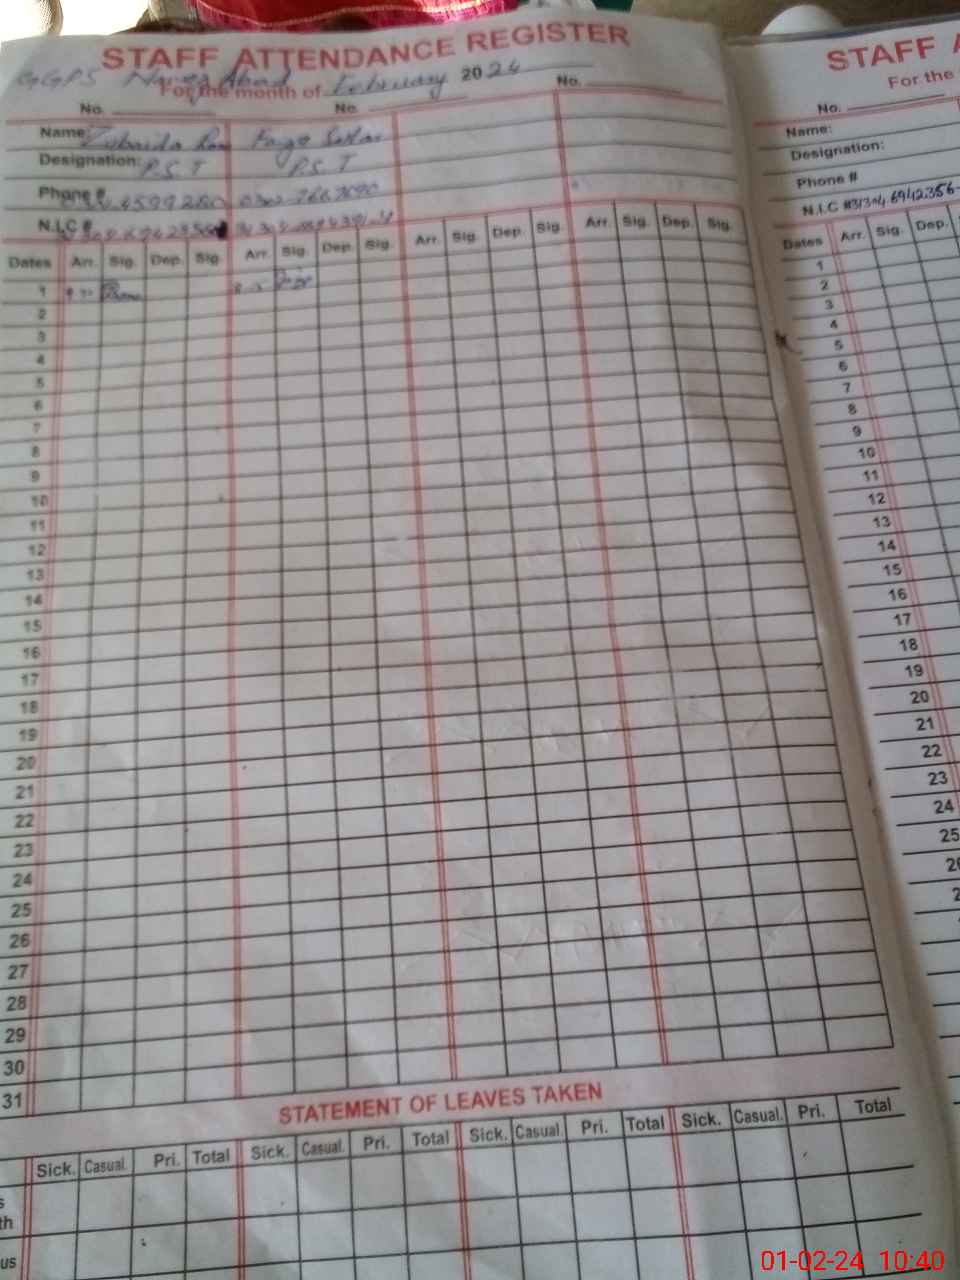 STAFF ATTENDANCE REGISTER
GGPS Abad
For the month of February 2024
No. No. No.
Name: Zubaida
Designation: P.S.T P.S.T
Phone #
N.I.C #
Dates Arr. Sig. Dep. Sig. Arr. Sig. Dep. Sig. Arr. Sig. Dep. Sig. Arr. Sig. Dep. Sig.
1
2
3
4
5
6
7
8
9
10
11
12
13
14
15
16
17
18
19
20
21
22
23
24
25
26
27
28
29
30
31
STATEMENT OF LEAVES TAKEN
Sick. Casual. Pri. Total Sick. Casual. Pri. Total Sick. Casual. Pri. Total Sick. Casual. Pri. Total
STAFF
For the
No.
Name:
Designation:
Phone #
N.I.C #
Dates Arr. Sig. Dep.
1
2
3
4
5
6
7
8
9
10
11
12
13
14
15
16
17
18
19
20
21
22
23
24
25
01-02-24 10:40